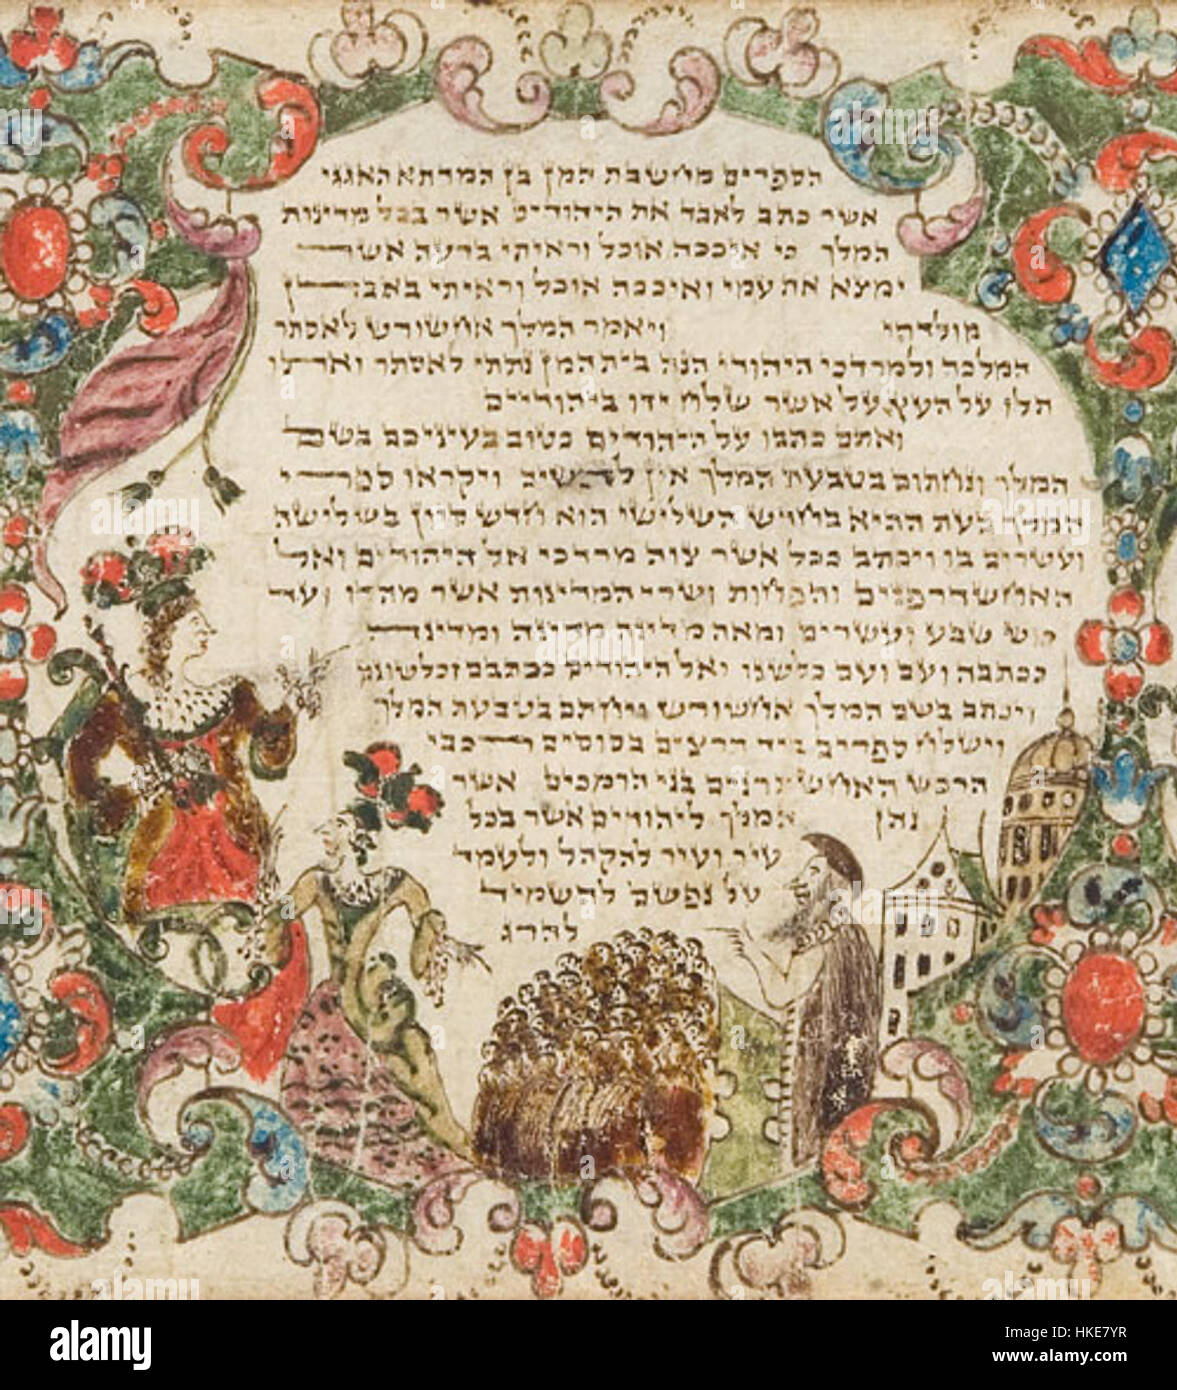 הספרים מחשבת המן בן המדתא האגגי
אשר כתב לאבד את היהודים אשר בכל מדינות
המלך כי איככה אוכל וראיתי ברעה אשר
ימצא את עמי ואיככה אוכל וראיתי באבדן
מולדתי ויאמר המלך אחשורש לאסתר
המלכה ולמרדכי היהודי הנה בית המן נתתי לאסתר ואתו
תלו על העץ על אשר שלח ידו ביהודיים
ואתם כתבו על היהודים כטוב בעיניכם בשם
המלך וחתמו בטבעת המלך אין להשיב ויקראו ספרי
המלך בעת ההיא בחדש השלישי הוא חדש סיון בשלישה
ועשרים בו ויכתב ככל אשר צוה מרדכי אל היהודים ואל
האחשדרפנים והפחות ושרי המדינות אשר מהדו ועד
כוש שבע ועשרים ומאה מדינה מדינה ומדינה
ככתבה ועם ועם כלשנו ואל היהודים ככתבם וכלשונם
ויכתב בשם המלך אחשורש ויחתם בטבעת המלך
וישלח ספרים ביד הרצים בסוסים רכבי
הרכש האחשתרנים בני הרמכים אשר
נתן המלך ליהודים אשר בכל
עיר ועיר להקהל ולעמד
על נפשם להשמיד
להרג
alamy
alamy stock photo
HKE7YR
www.alamy.com